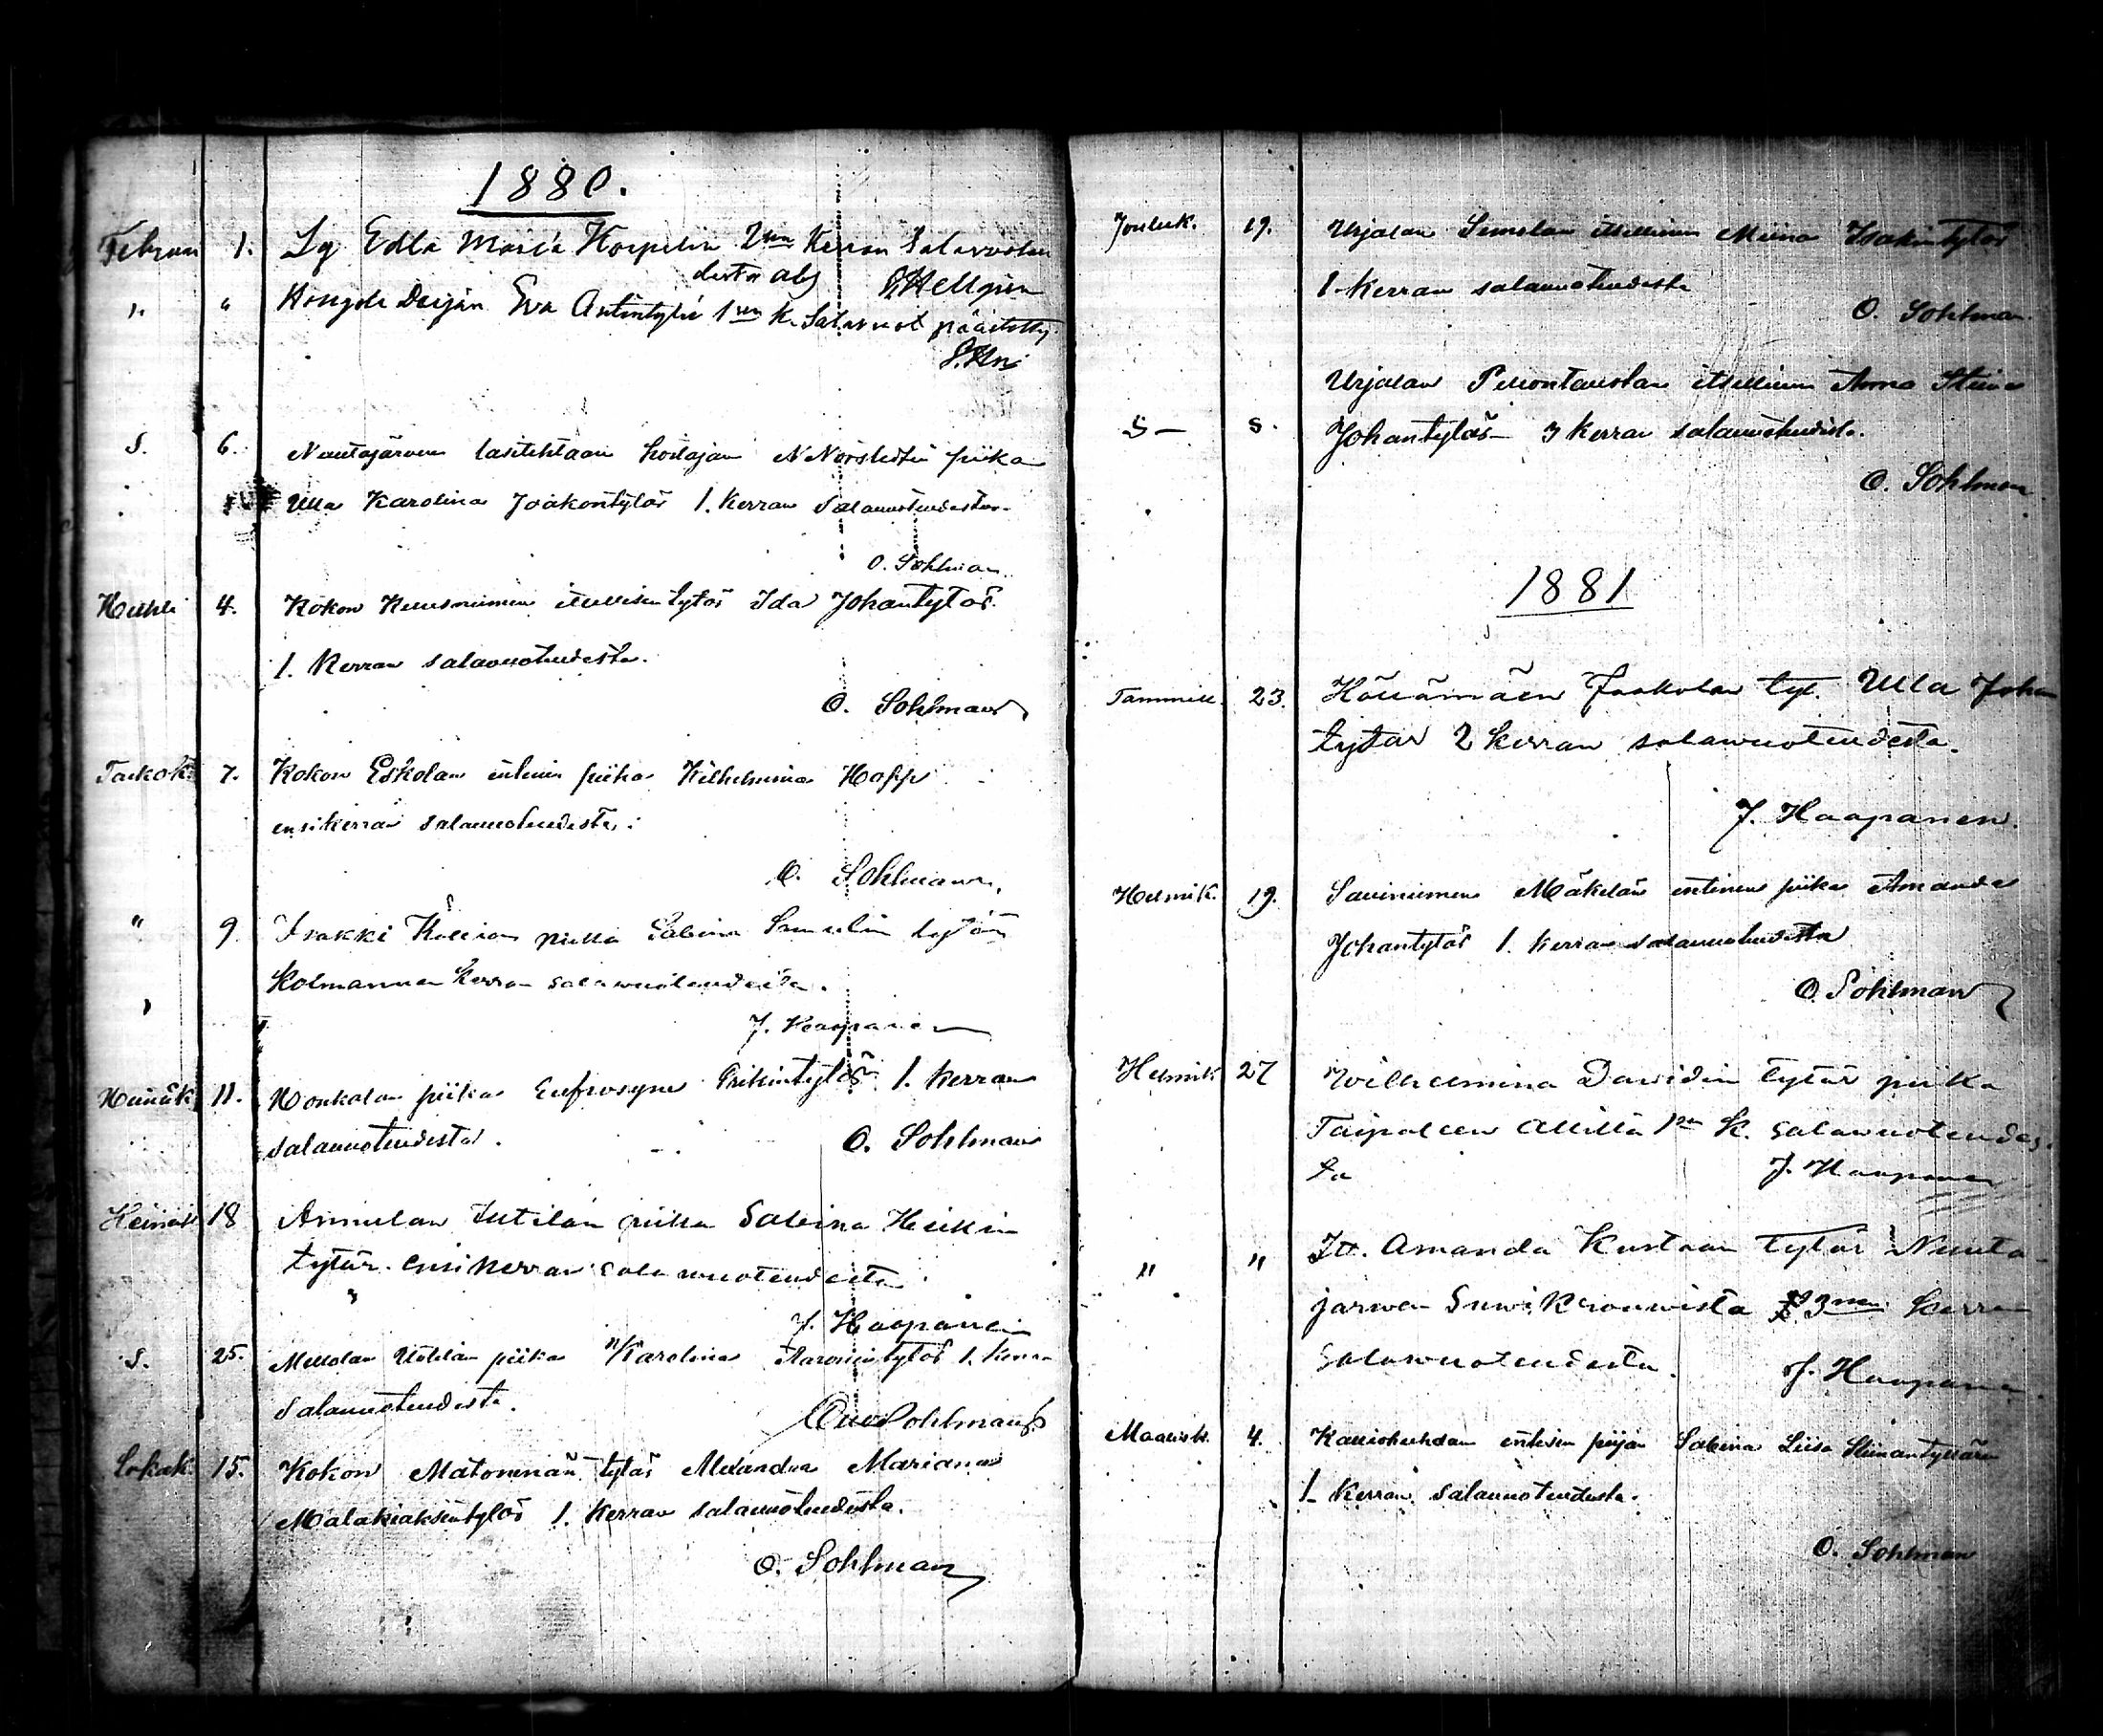 1880.
Februar 1. Lg Edla Maria 2en Kerran Salavuoteu
desta abs
" " Eva Antintytär 1en K. Salavuot päästetty
S. 6. Nuutajärven lasitehtaan hoitajan piika
Ulla Karolina Jaakontytär 1. Kerran Salavuoteudesta.
O. Sohlman.
Huhti 4. Kokon itsellisen tytär Ida Johantytär
1. Kerran salavuoteudesta.
O. Sohlman
Toukok. 7. Kokon Eskolan entinen piika Wilhelmina Hopp
ensikerran salavuoteudesta.
O. Sohlman.
" 9. Isakki piikka Sabina Samulin tytön
Kolmannen Kerran salawuoteudesta.
J. Haapanen
11. Honkolan piika Eufrosyne Erikintytär 1. Kerran
salavuoteudesta. O. Sohlman
Heinäk 18 Annulan Jutilan piika Sabina Heikin
tytär ensikerran salawuoteudesta
J. Haapanen
S. 25. Mellolan piika Karolina Aaronintytär 1. Kerran
Salavuoteudesta.
Otto Sohlman
Lokak. 15. Kokon tytär Alexandra Mariana
Malakiaksentytär 1. Kerran salavuoteudesta.
O. Sohlman
Jouluk. 19. Urjalan itsellinen Miina Isakintytär
1. Kerran salavuoteudesta
O. Sohlman.
Urjalan Pellontaustan itsellinen Anna Stiina
S— S. Johantytär 3 Kerran salavuoteudesta.
O. Sohlman
1881
Tammik. 23. Jaakolan tyt. Ulla Johan
tytär 2 kerran salawuoteudesta.
J. Haapanen.
Helmik. 19. Saviniemen Mäkelän entinen piika Amanda
Johantytär 1. kerran salavuoteudesta
O. Sohlman
Helmik 27 Wilhelmina Davidin tytär piika
Taipaleen Allilla 1en K. salawuoteudes
ta J. Haapanen
" " Itt. Amanda Kustaan tytär Nuuta
järwen 3nen kerran
Salawuoteudesta. J. Haapanen.
Maalisk. 4. entisen piijan Sabina Liisa Stiinantyttären
1. Kerran salavuoteudesta.
O. Sohlman